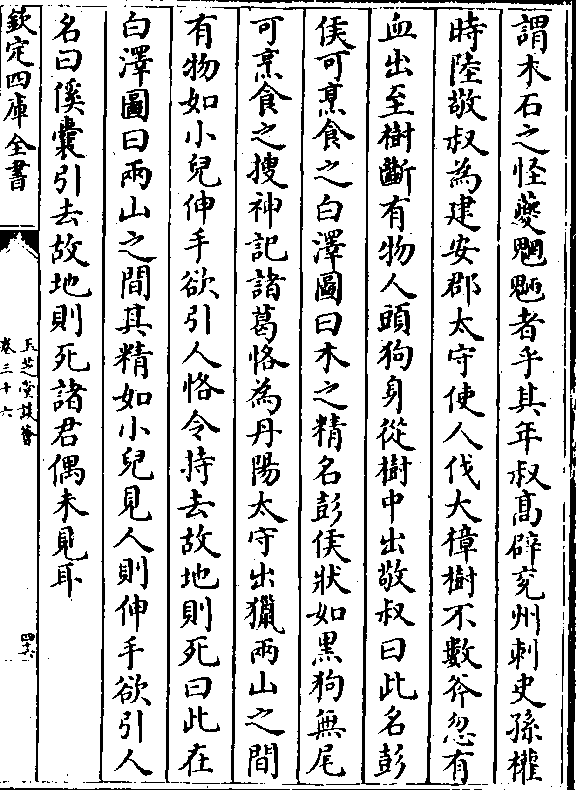 謂木石之怪夔魍魎者乎其年叔髙辟兖州刺史孫權
時陸敬叔為建安郡太守使人伐大樟樹不數斧忽有
血出至樹斷有物人頭狗身從樹中出敬叔曰此名彭
侯可烹食之白澤圖曰木之精名彭侯狀如黒狗無尾
可烹食之搜神記諸葛恪為丹陽太守出獵兩山之間
有物如小兒伸手欲引人恪令持去故地則死曰此在
白澤圖曰兩山之間其精如小兒見人則伸手欲引人
名曰傒囊引去故地則死諸君偶未見耳
欽定四庫全書
玉芝堂談薈
卷三十六
四六